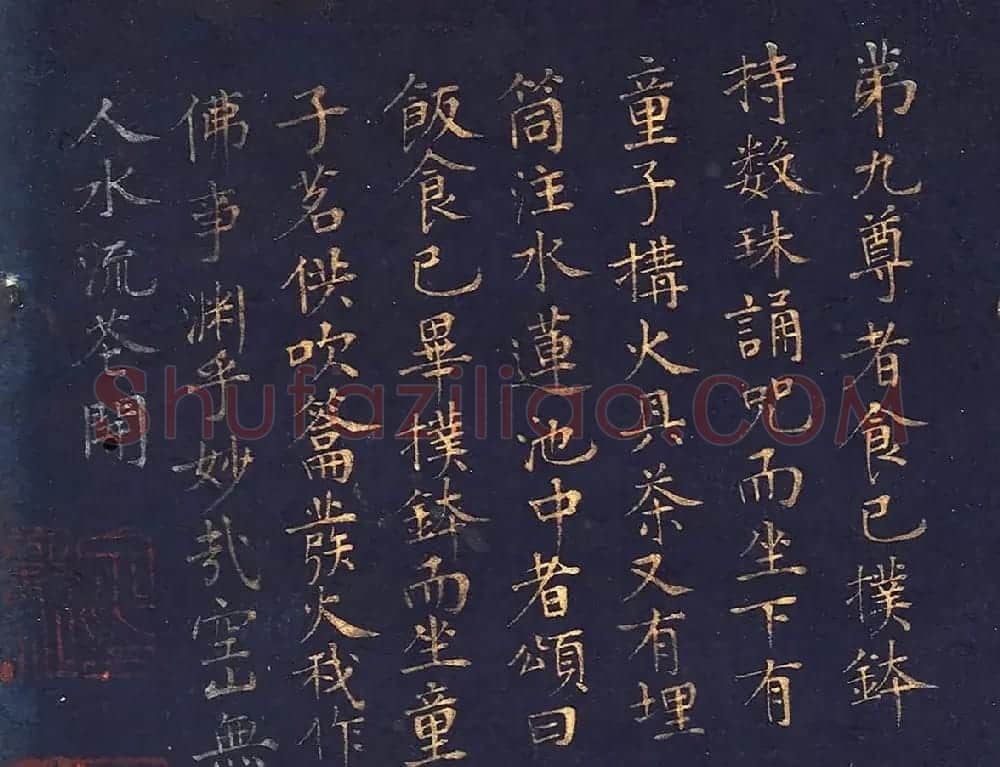 弟九尊者食已撲鉢
持数珠誦呪而坐下有
童子構火具茶又有埋
筒注水蓮池中者頌曰
飯食已畢撲鉢而坐童
子茗供吹籥發火我作
佛事渊乎妙哉空山無
人水流花開
Shufaziliao.COM